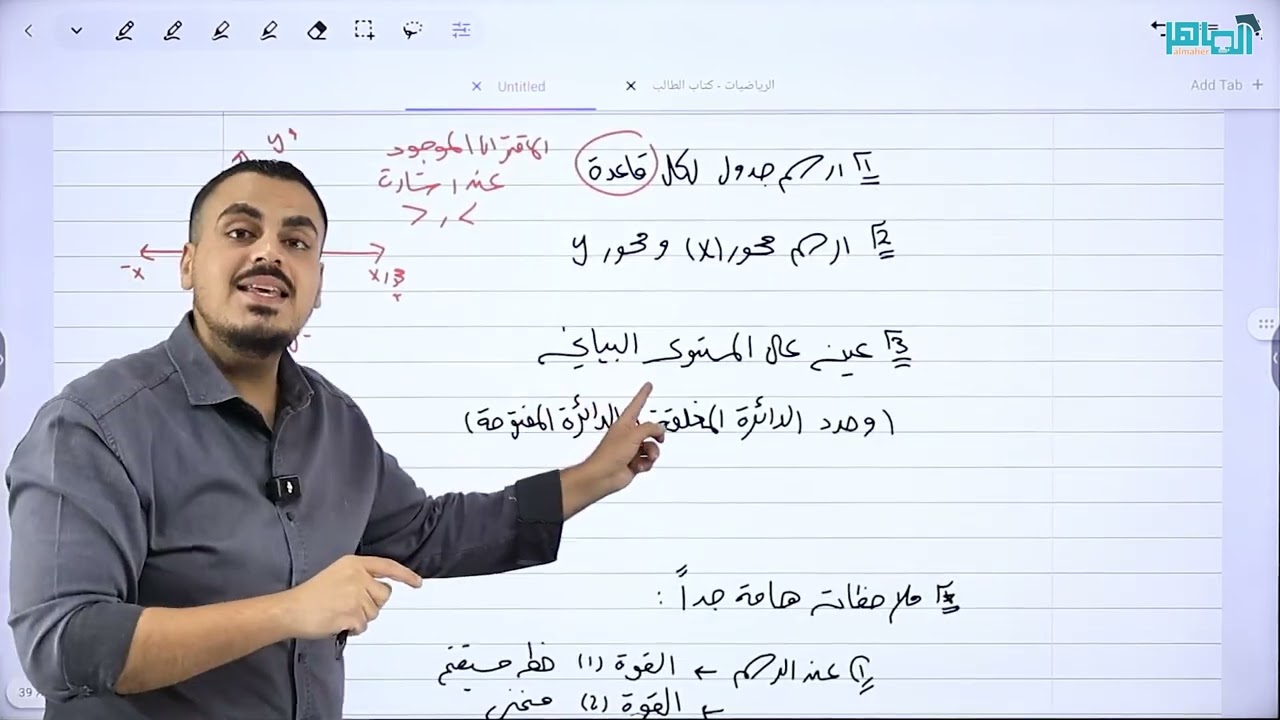 الماهر
almaher
Untitled
الرياضيات - كتاب الطالب
Add Tab +
1 ارسم جدول لكل قاعدة
الاقتران الموجود
عند إشارة
> , <
2 ارسم محور (x) و محور y
y
-x
x
3 عين عال المستوى البياني
(وحدد الدائرة المغلقة الدائرة المفتوحة)
* ملاحظات هامة جداً :
1) عند الرسم ← القوة (1) خط مستقيم
← القوة (2) منحنى
39